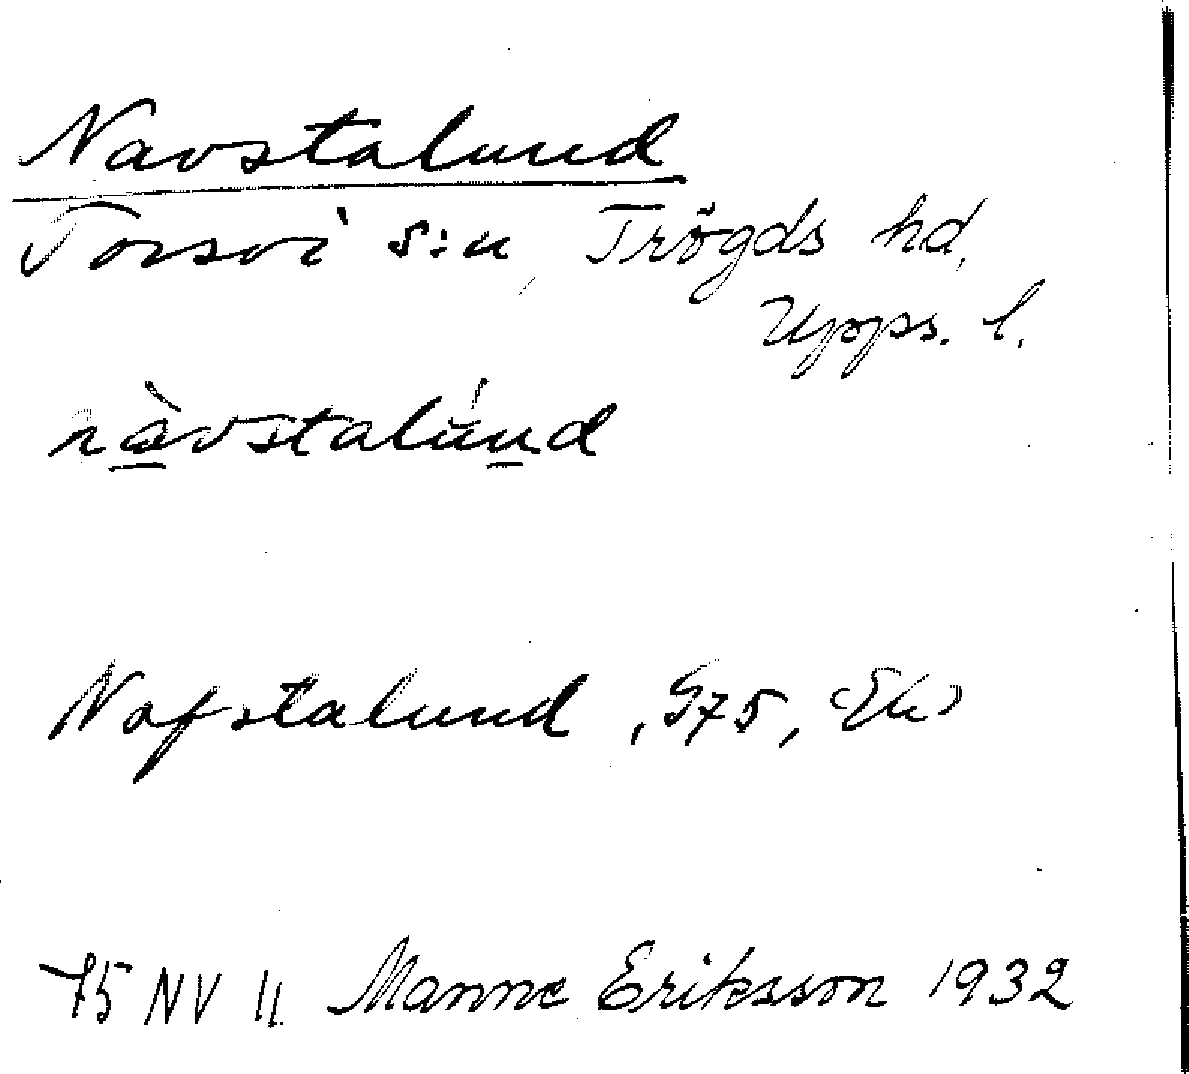 Navstalund
Torsvi s:n, Trögds hd,
Upps. l.
nàvstalúnd
Nafstalund, G75, Ek
75 NV 11 Manne Eriksson 1932